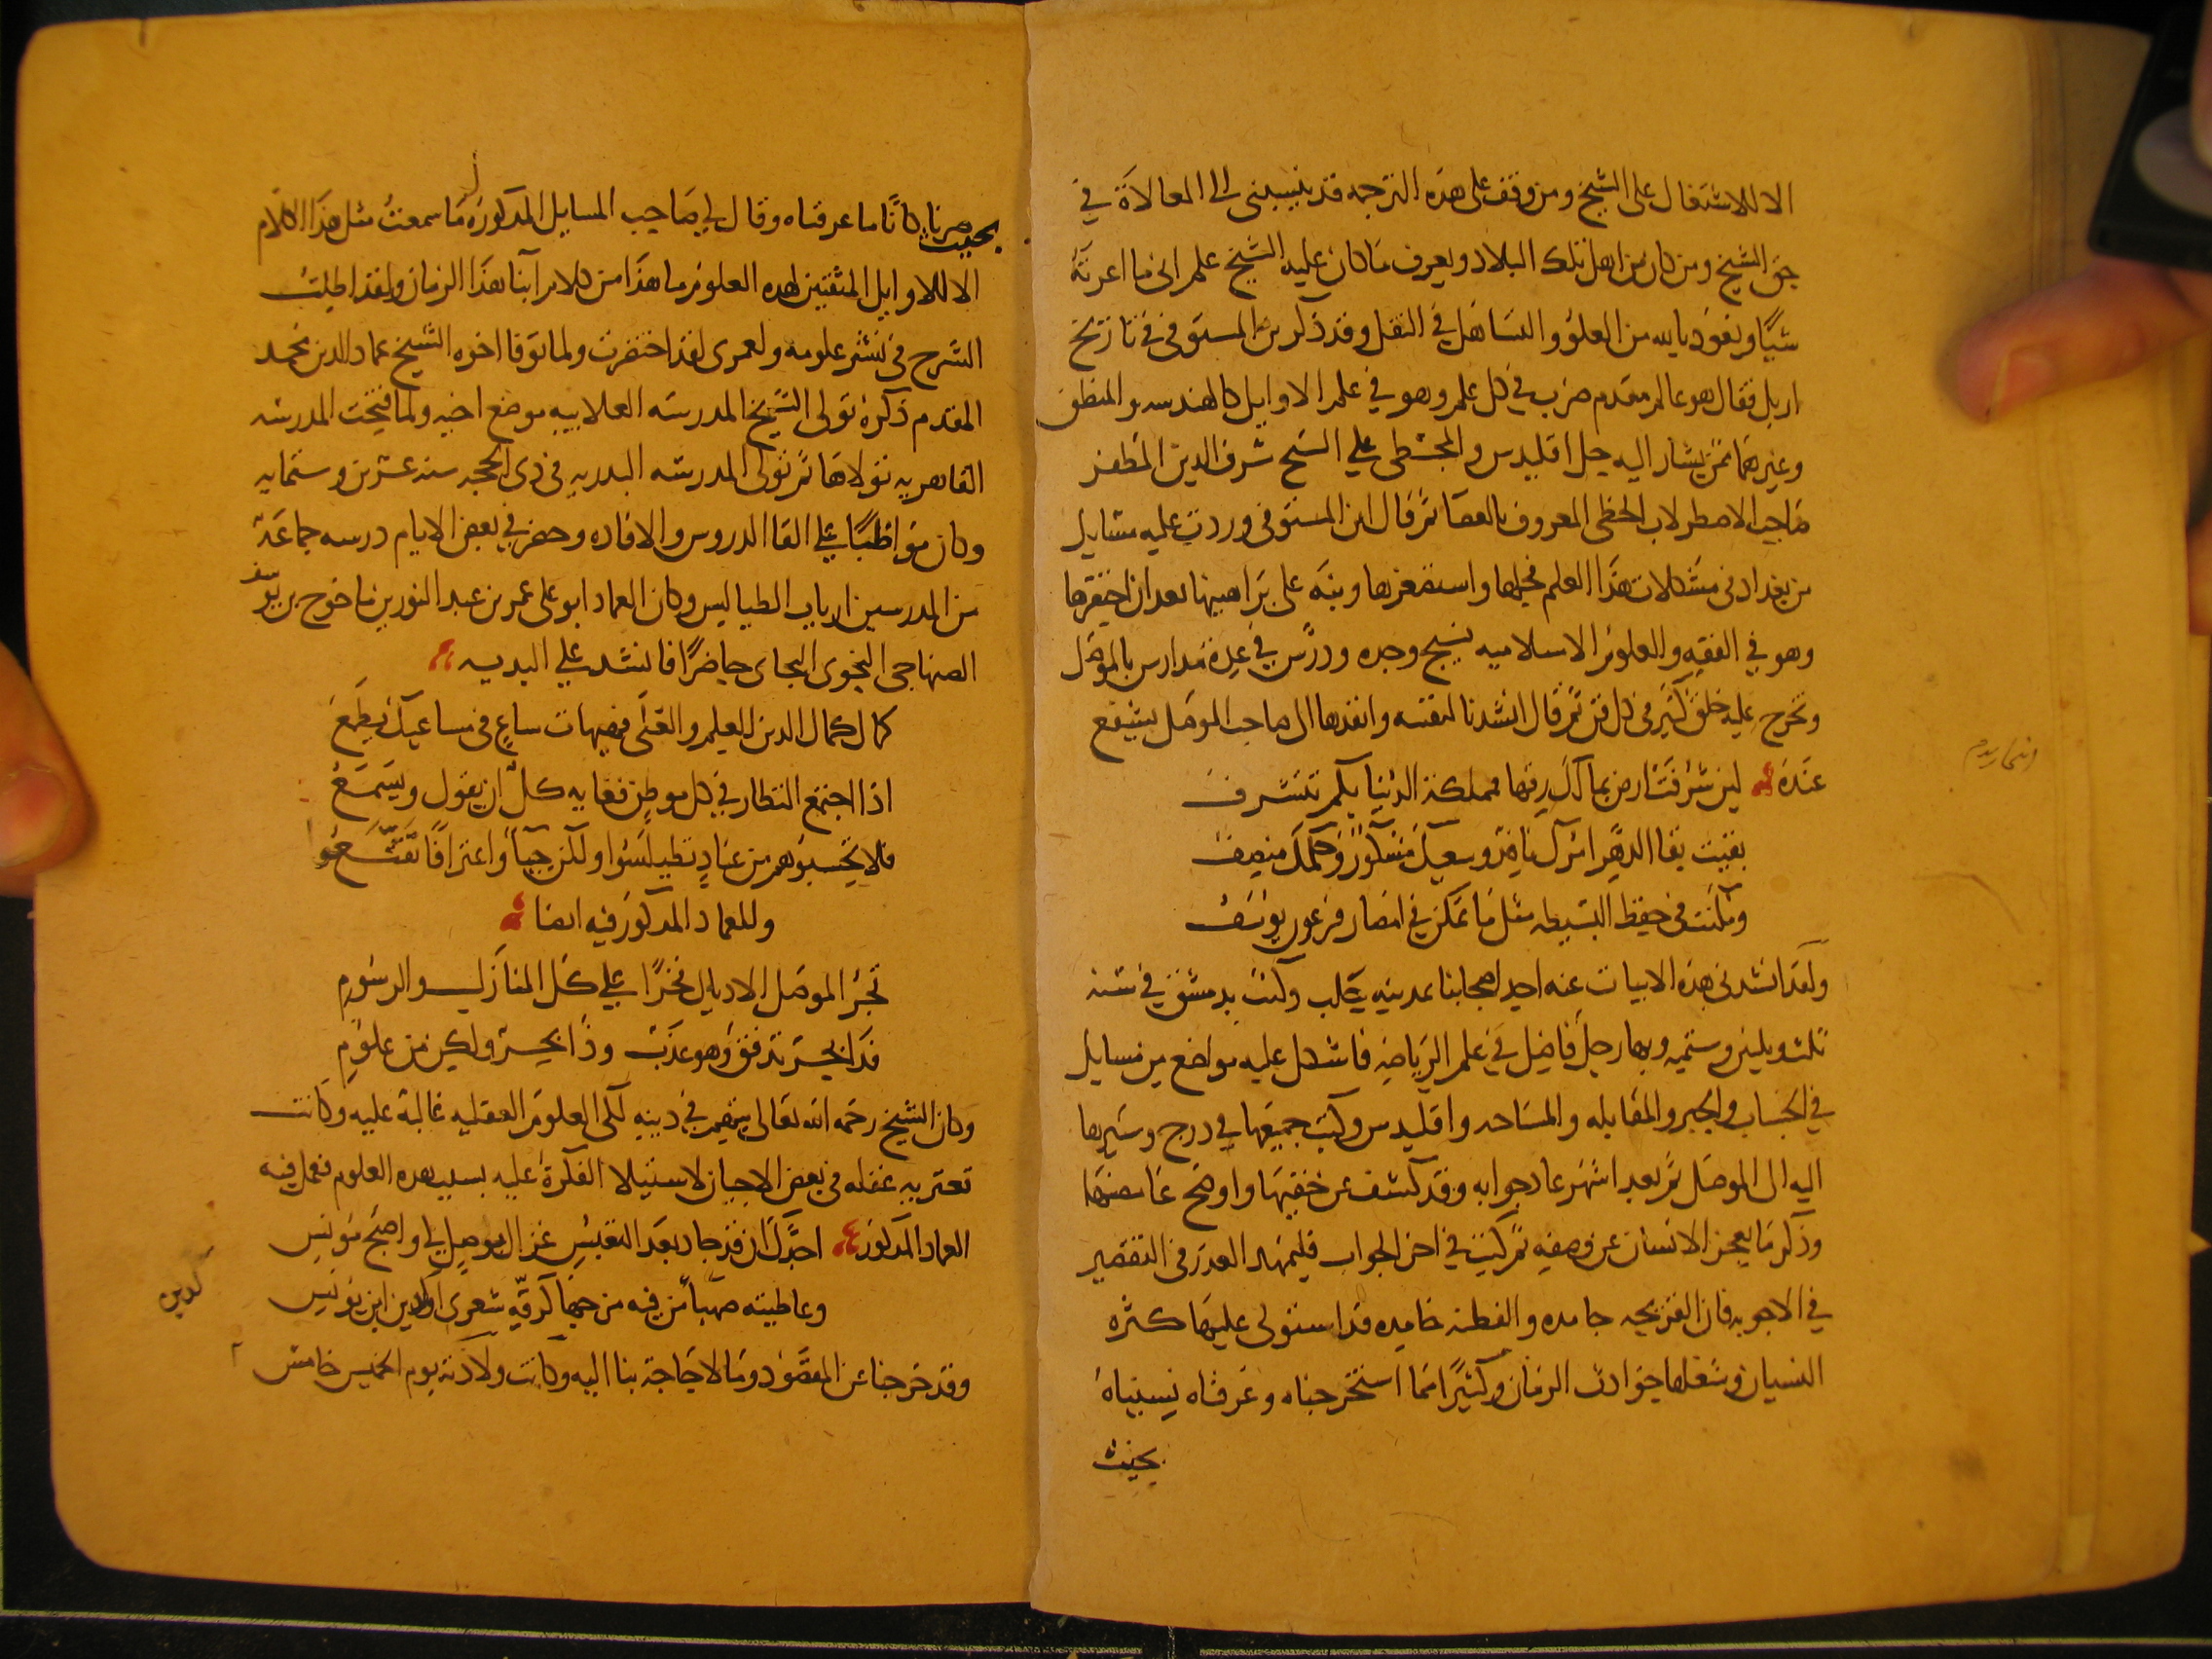 الا للاشتغال على الشيخ ومن وقف على هذه الترجمه قد ينسبنى الى المغالاة في
حق الشيخ ومن كان من اهل تلك البلاد ويعرف ما كان عليه الشيخ علم انى ما اعرته
شيًا ونعوذ بالله من الغلو والتساهل في النقل وقد ذكر بن المستوفى في تاريخ
اربل فقال هو عالم مقدم ضرب في كل علم وهو في علم الاوايل كالهندسه والمنطق
وغيرهما ممن يشار اليه حل اقليدس والمجسطى علي الشيخ شرف الدين المظفر
صاحب الاصطرلاب الخطى المعروف بالعصا ثم قال ابن المستوفى وردت عليه مسايل
من بغداد في مشكلات هذا العلم فحلها واستصغرها ونبه على براهينها بعد ان احتقرها
وهو في الفقه والعلوم الاسلاميه نسيج وحده ودرّس في عدة مدارس بالموصل
وتخرج عليه خلق كثير في كل فن ثم قال انشدنا لنفسه وانفذها الى صاحب الموصل يشفع
عنده لين شرفت ارض بمالك رقها فمملكة الدنيا بكم تتشرف
بقيت بقا الدهر امرك نافذ وسعيك مشكور وحكمك منصف
ومكنت في حفظ البسيطه مثل ما تمكن في امصار فرعون يوسف
ولقد انشدنى هذه الابيات عنه احد اصحابنا بمدينه حلب وكنت بدمشق في سنه
ثلث وثلثين وستميه وبها رجل فاضل في علم الرياضه فاشكل عليه مواضع من مسايل
في الحساب والجبر والمقابله والمساحه واقليدس وكتب جميعها في درج وسيرها
اليه الى الموصل ثم بعد اشهر عاد جوابه وقد كشف عن خفيها واوضح غامضها
وذكر ما يعجز الانسان عن وصفه ثم كتب في اخر الجواب فليمهد العذر في التقصير
في الاجوبه فان القريحه جامده والفطنه خامده قد استولى عليها كثره
النسيان وشغلها حوادث الزمان وكثيرًا مما استخرجناه وعرفناه نسيناه
بحيث
بحيث صرنا كانّا ما عرفناه وقال لي صاحب المسايل المذكوره ما سمعت مثل هذا الكلام
الا للاوايل المتقنين لهذه العلوم ما هذا من كلام ابنا هذا الزمان ولقد اطلت
الشرح في نشر علومه ولعمرى لقد اختصرت ولما توفا اخوه الشيخ عماد الدين محمد
المقدم ذكره تولى الشيخ المدرسه العلاييه موضع اخيه ولما فتحت المدرسه
القاهريه تولاها ثم تولى المدرسه البدريه في ذى الحجه سنه عشرين وستمايه
وكان مواظبًا علي القا الدروس والافاده وحضر في بعض الايام درسه جماعة
من المدرسين ارباب الطيالس وكان العماد ابو على عمر بن عبد النور بن ماخوخ بن يوسف
الصنهاجى النحوى البجاى حاضرًا فانشد علي البديه
كمال كمال الدين للعلم والعلى فهيهات ساع في مساعيك يطمع
اذا اجتمع النظار في كل موطن فغايه كل ان يقول ويسمع
فلا تحسبوهم من عناد تطيلسوا ولكن حياً واعترافًا تقنعوا
وللعماد المذكور فيه ايضا
تجر الموصل الاذيال فخرًا علي كل المنازل والرسوم
فذا بحر تدفق وهو عذب وذا بحر ولكن من علوم
وكان الشيخ رحمه الله تعالى يتهم في دينه لكن العلوم العقليه غالبة عليه وكانت
تعتريه غفله في بعض الاحيان لاستيلا الفكره عليه بسبب هذه العلوم فعمل فيه
العماد المذكور اجدّك ان قد جاد بعد التعبس غزال بوصل لي واصبح مونس
وعاطيته صهباً من فيه مزجها كرقه شعرى او كدين ابن يونس
كدين
وقد خرجنا عن المقصود وما لا حاجة بنا اليه وكانت ولادته يوم الخميس خامس